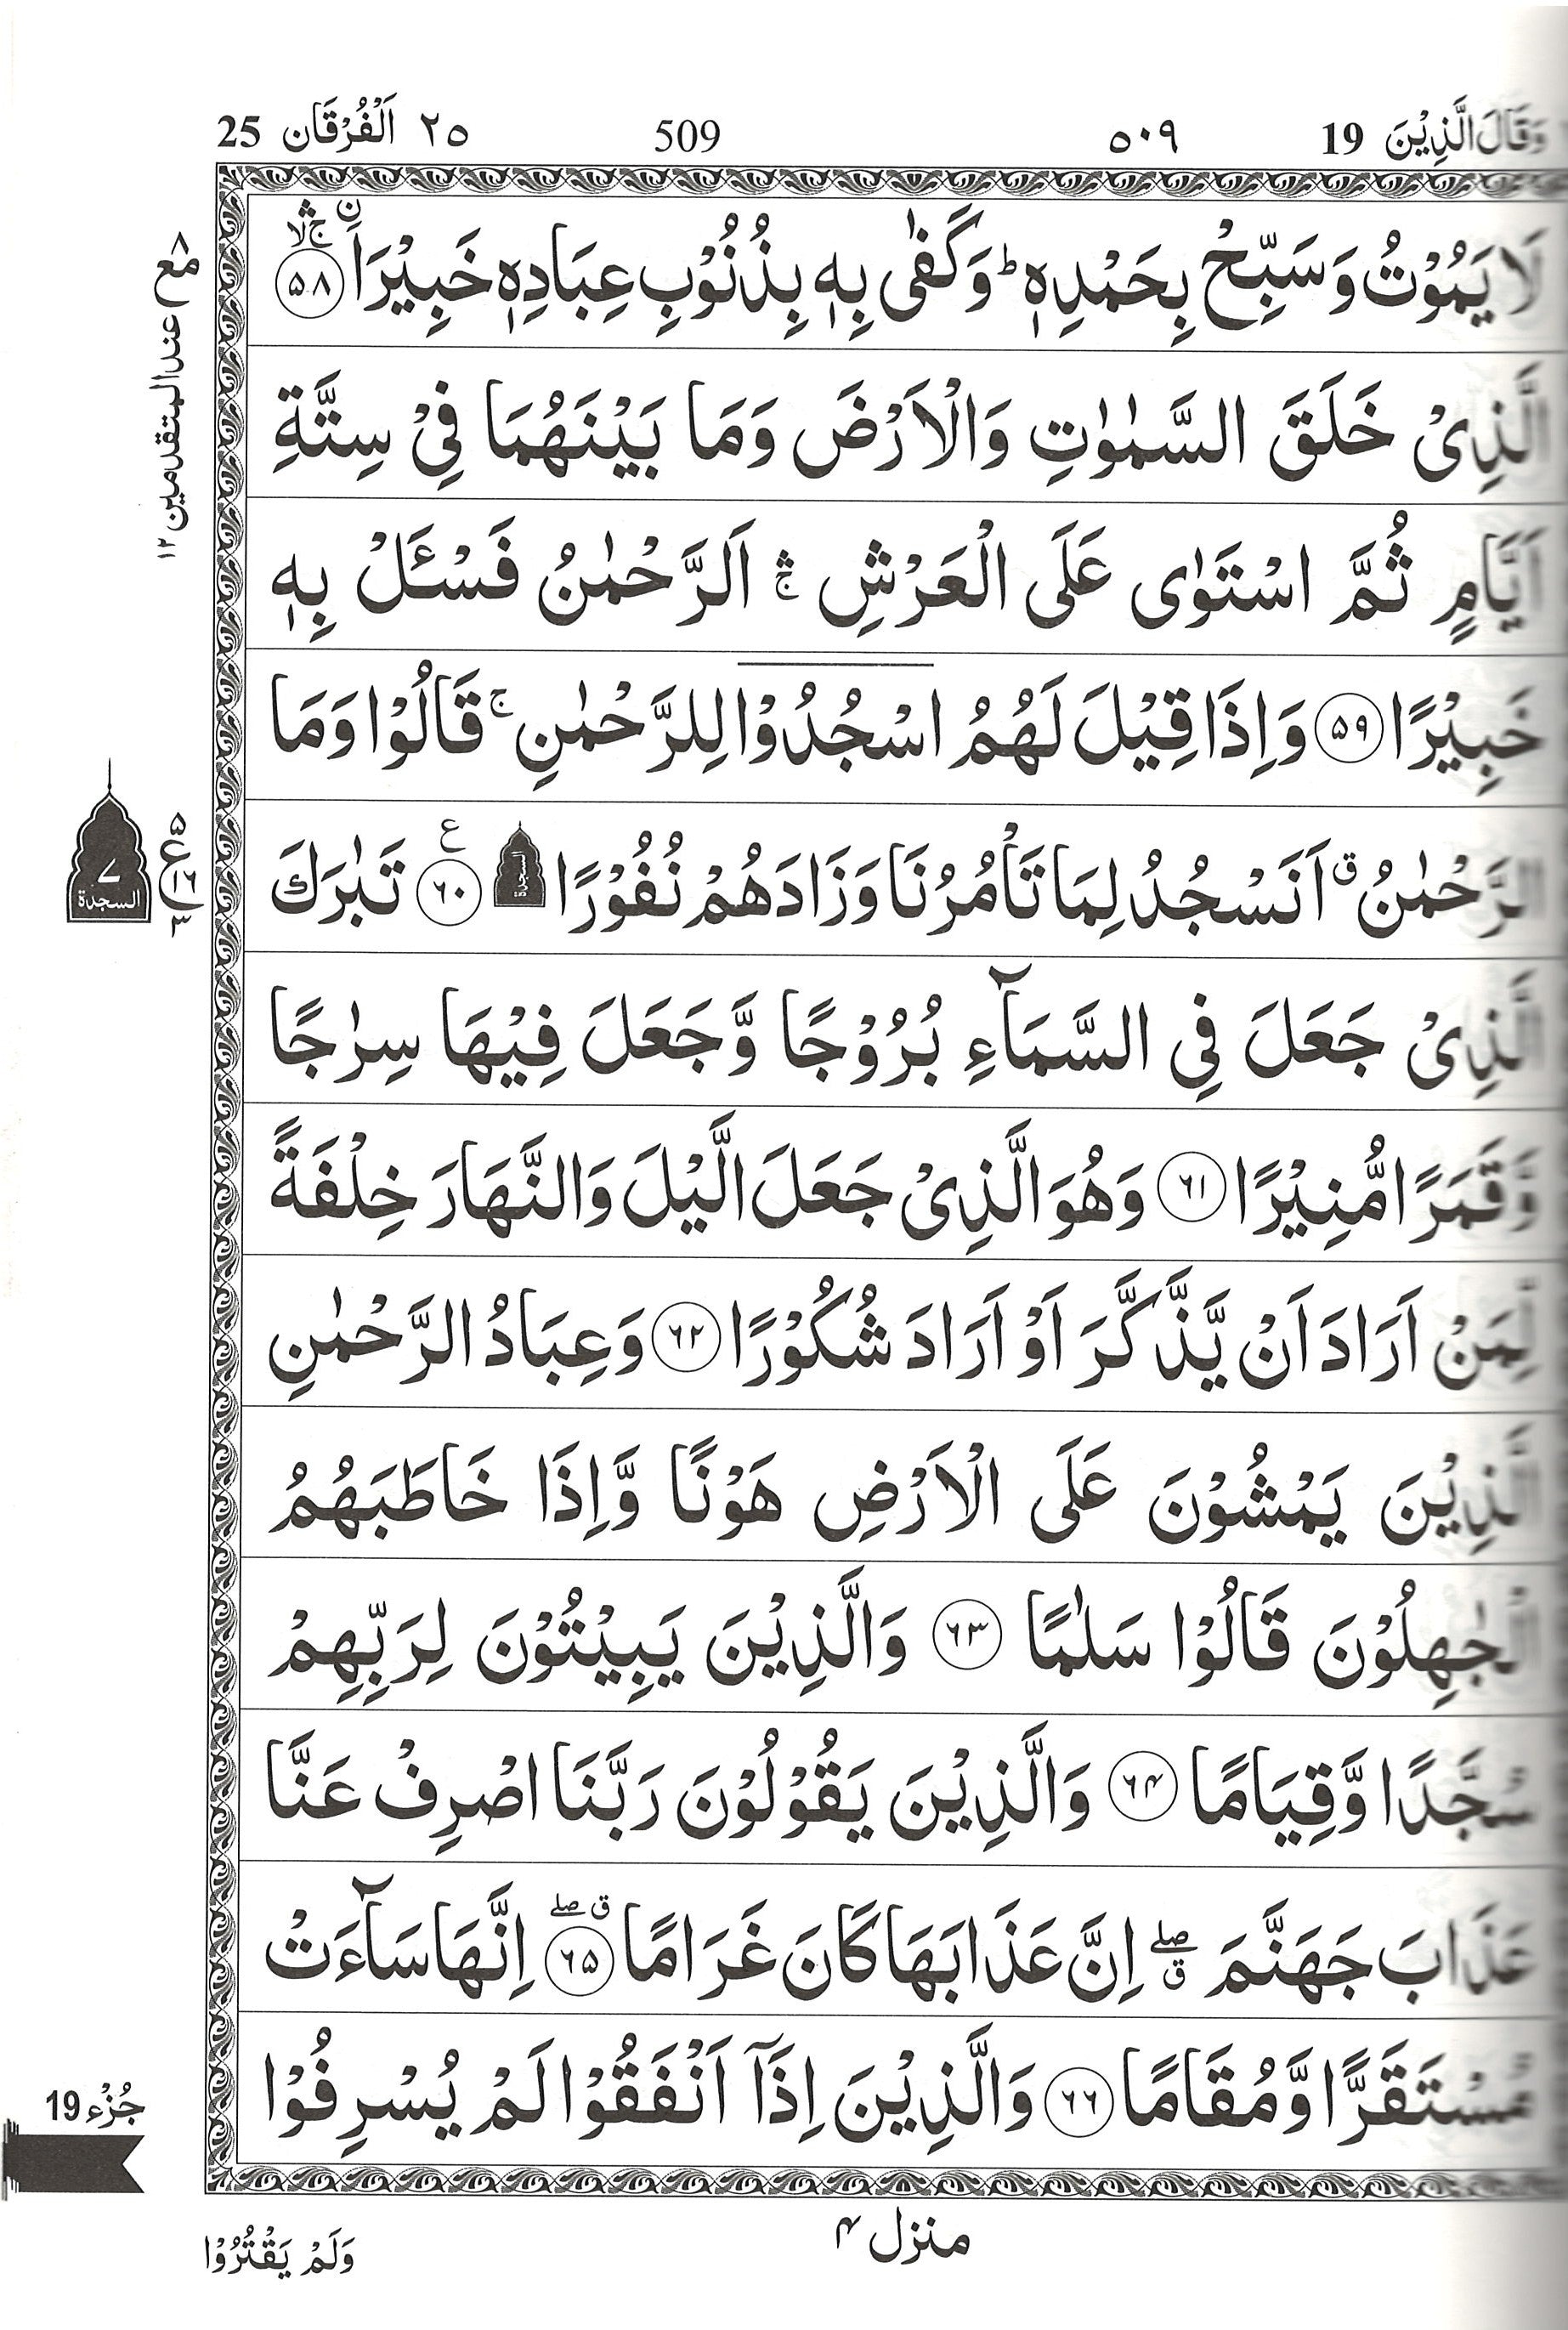 وَقَالَ الَّذِيْنَ 19 ٥٠٩ 509 ٢٥ اَلْفُرْقَان 25
لَا يَمُوْتُ وَسَبِّحْ بِحَمْدِهٖ ؕ وَكَفٰى بِهٖ بِذُنُوْبِ عِبَادِهٖ خَبِيْرَا ۟ۙۛۚ ﴿۵۸﴾
الَّذِىْ خَلَقَ السَّمٰوٰتِ وَالْاَرْضَ وَمَا بَيْنَهُمَا فِىْ سِتَّةِ
اَيَّامٍ ثُمَّ اسْتَوٰى عَلَى الْعَرْشِ ۛۚ اَلرَّحْمٰنُ فَسْـَٔلْ بِهٖ
خَبِيْرًا ﴿۵۹﴾ وَاِذَا قِيْلَ لَهُمُ اسْجُدُوْا لِلرَّحْمٰنِ ۚ قَالُوْا وَمَا
الرَّحْمٰنُ ق اَنَسْجُدُ لِمَا تَاْمُرُنَا وَزَادَهُمْ نُفُوْرًا السجدة ﴿۶۰﴾ ع تَبٰرَكَ
الَّذِىْ جَعَلَ فِى السَّمَآءِ بُرُوْجًا وَّجَعَلَ فِيْهَا سِرٰجًا
وَّقَمَرًا مُّنِيْرًا ﴿۶۱﴾ وَهُوَ الَّذِىْ جَعَلَ الَّيْلَ وَالنَّهَارَ خِلْفَةً
لِّمَنْ اَرَادَ اَنْ يَّذَّكَّرَ اَوْ اَرَادَ شُكُوْرًا ﴿۶۲﴾ وَعِبَادُ الرَّحْمٰنِ
الَّذِيْنَ يَمْشُوْنَ عَلَى الْاَرْضِ هَوْنًا وَّاِذَا خَاطَبَهُمُ
الْجٰهِلُوْنَ قَالُوْا سَلٰمًا ﴿۶۳﴾ وَالَّذِيْنَ يَبِيْتُوْنَ لِرَبِّهِمْ
سُجَّدًا وَّقِيَامًا ﴿۶۴﴾ وَالَّذِيْنَ يَقُوْلُوْنَ رَبَّنَا اصْرِفْ عَنَّا
عَذَابَ جَهَنَّمَ ق صلے اِنَّ عَذَابَهَا كَانَ غَرَامًا ﴿۶۵﴾ ق صلے اِنَّهَا سَآءَتْ
مُسْتَقَرًّا وَّمُقَامًا ﴿۶۶﴾ وَالَّذِيْنَ اِذَآ اَنْفَقُوْا لَمْ يُسْرِفُوْا
منزل ۴
وَلَمْ يَقْتُرُوْا
مع ٨ عند المتقدمين ١٢
۵ ع ١٦ ٣
السجدة ٧
جُزْء 19